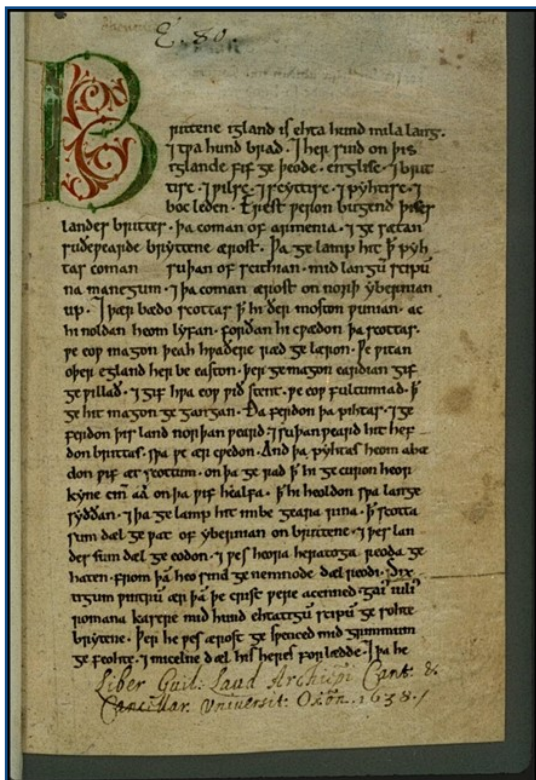 E. 80.
Brittene igland is ehta hund mila lang.
⁊ tƿa hund brad. ⁊ her sind on þis
iglande fif ge þeode. englisc. ⁊ brit
tisc. ⁊ ƿilsc. ⁊ scyttisc. ⁊ pyhtisc. ⁊
boc leden. Erest ƿeron bugend þises
landes brittes. þa coman of armenia. ⁊ ge sætan
suðeƿearde bryttene ærost. Þa ge lamp hit ꝥ pyh
tas coman suþan of scithian. mid langū scipū
na manegum. ⁊ þa coman ærost on norþ ybernian
up. ⁊ þær bædo scottas ꝥ hi ðer moston ƿunian. ac
hi noldan heom lyfan. forðan hi cƿædon þa scottas.
ƿe eoƿ magon þeah hƿaðere ræd ge læron. Ƿe ƿitan
oþer egland her be easton. þer ge magon eardian gif
ge ƿillað. ⁊ gif hƿa eoƿ ƿið stent. ƿe eoƿ fultumiað. ꝥ
ge hit magon ge gangan. Ða ferdon þa pihtas. ⁊ ge
ferdon þis land norþan ƿeard. ⁊ suþan ƿeard hit hef
don brittas. sƿa ƿe ær cƿedon. And þa pyhtas heom abæ
don ƿif æt scottum. on þa ge rad ꝥ hi ge curon heor
kyne cin aa on þa ƿif healfa. ꝥ hi heoldon sƿa lange
syððan. ⁊ þa ge lamp hit imbe geara rina. ꝥ scotta
sum dæl ge ƿat of ybernian on brittene. ⁊ þes lan
des sum dæl ge eodon. ⁊ ƿes heora heratoga reoda ge
haten. from þā heo sind ge nemnode dæl reodi. Six
tigum ƿintrū ær þā þe crist ƿere acenned gai iuli
romana kasere mid hund ehtatigū scipū ge sohte
brytene. Þer he ƿes ærost ge sƿenced mid grimmum
ge feohte. ⁊ micelne dæl his heres forlædde. ⁊ þa he
Liber Guil: Laud Archiepi Cant: &
Cancellar. Universit: Oxōn. 1638.